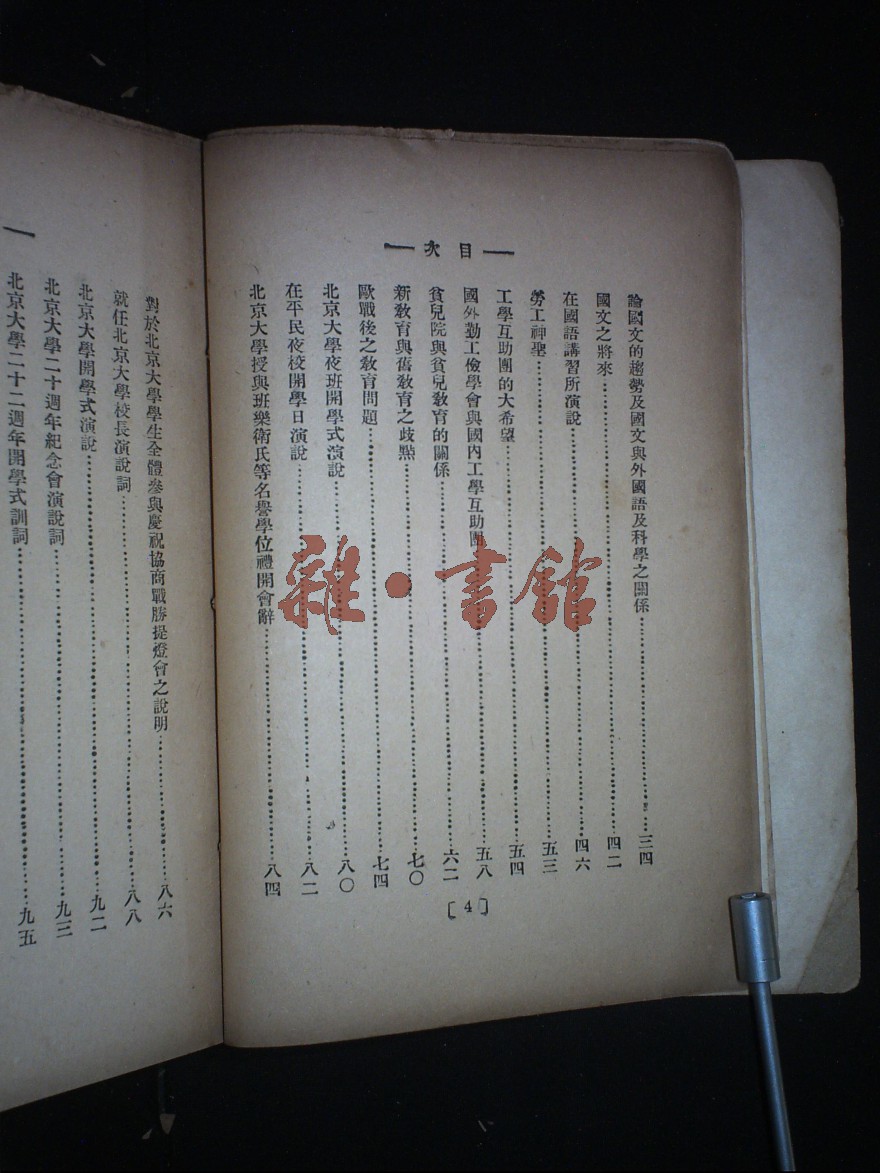 —次目—
論國文的趨勢及國文與外國語及科學之關係……三四
國文之將來……四二
在國語講習所演說……四六
勞工神聖……五三
工學互助團的大希望……五四
國外勤工儉學會與國內工學互助團……五八
貧兒院與貧兒教育的關係……六二
新教育與舊教育之歧點……七〇
歐戰後之教育問題……七四
北京大學夜班開學式演說……八〇
在平民夜校開學日演說……八二
北京大學授與班樂衛氏等名譽學位禮開會辭……八四
〔4〕
對於北京大學學生全體參與慶祝協商戰勝提燈會之說明……八六
就任北京大學校長演說詞……八八
北京大學開學式演說……九二
北京大學二十週年紀念會演說詞……九三
北京大學二十二週年開學式訓詞……九五
雜·書館